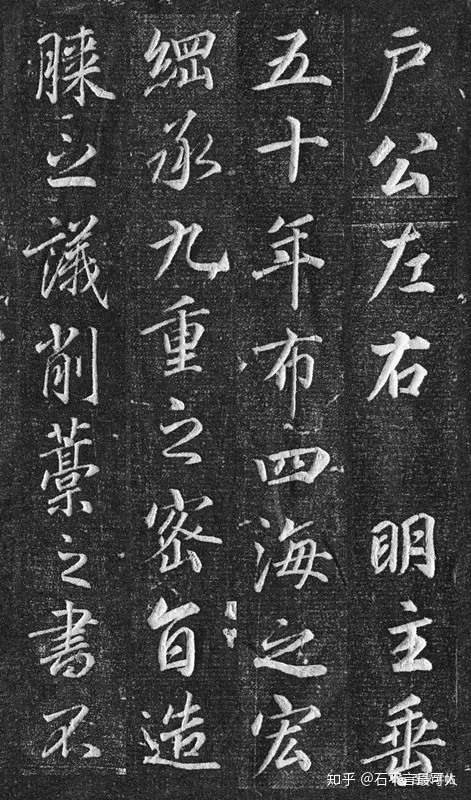 戶公左右 明主垂
五十年布四海之宏
綱承九重之密旨造
膝之議削藁之書不
知乎 @石不言最可人